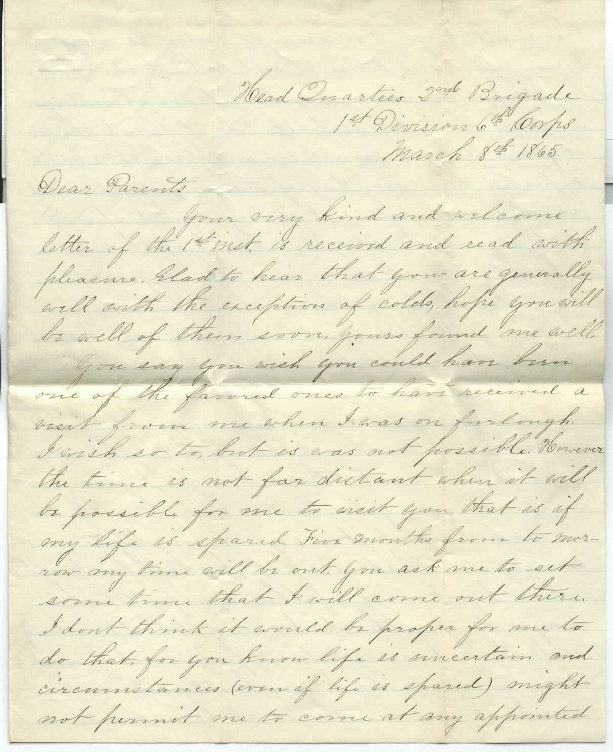 Head Quarters 2nd Brigade
1st Division 6th Corps
March 8th 1865
Dear Parents
Your very kind and welcome
letter of the 1st inst. is received and read with
pleasure. Glad to hear that you are generally
well with the exception of colds, hope you will
be well of them soon. yours found me well.
You say you wish you could have been
one of the favored ones to have received a
visit from me when I was on furlough.
I wish so to, but is was not possible. However
the time is not far distant when it will
be possible for me to visit you, that is if
my life is spared. Five months from to mor-
row my time will be out. You ask me to set
some time that I will come out there.
I dont think it would be proper for me to
do that. for you know life is uncertain and
circumstances (even if life is spared) might
not permit me to come at any appointed